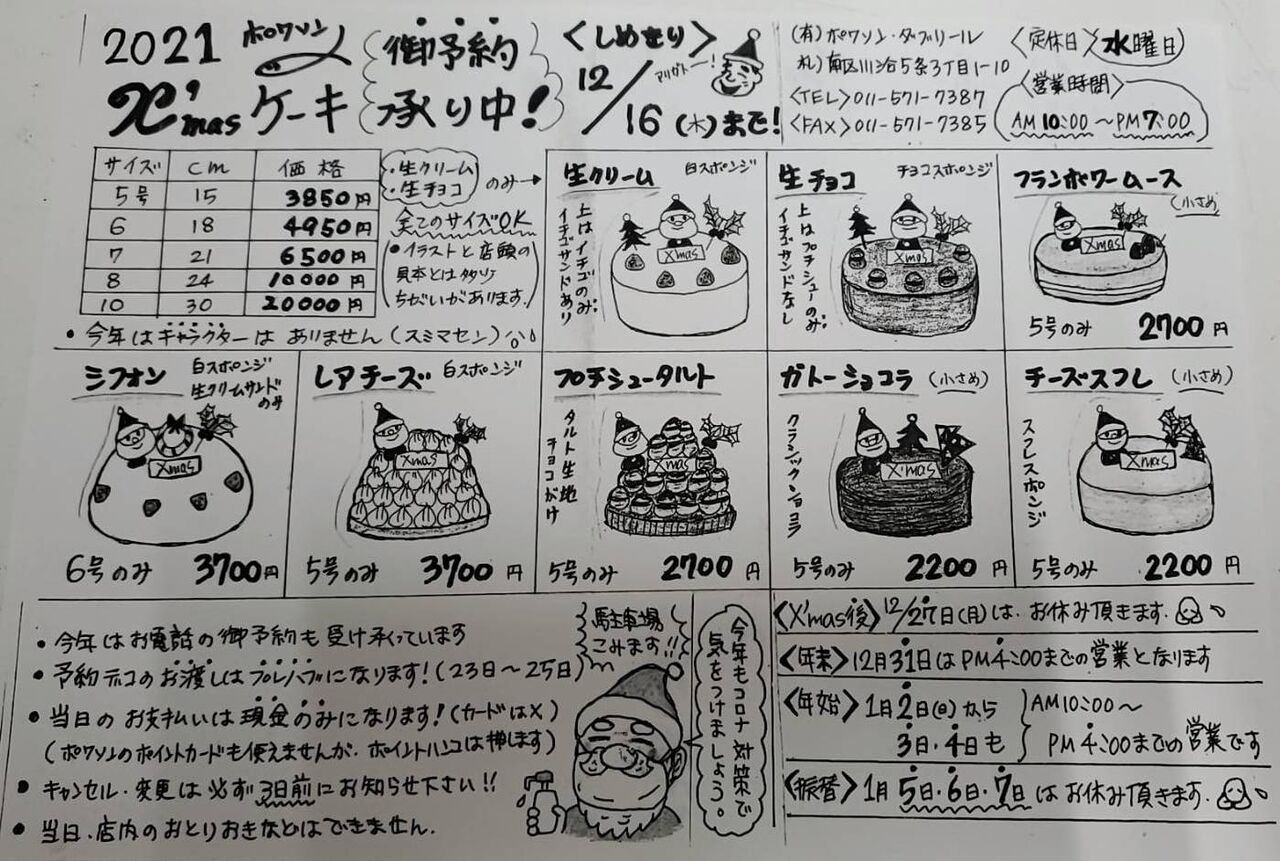 2021 ポワソン
X'masケーキ
御予約
承り中!
〈しめきり〉
12/16(木)まで!
アリガトー!
(有)ポワソン・ダブリール
札)南区川沿5条3丁目1-10
〈TEL〉011-571-7387
〈FAX〉011-571-7385
〈定休日〉水曜日
〈営業時間〉
AM10:00~PM7:00
サイズ cm 価格
5号 15 3850円
6 18 4950円
7 21 6500円
8 24 10000円
10 30 20000円
・生クリーム
・生チョコ
のみ→
全てのサイズOK
●イラストと店頭の
見本とは多少
ちがいがあります.
・今年はキャラクターは ありません(スミマセン)
生クリーム 白スポンジ
上はイチゴのみ。
イチゴサンドあり
X'mas
生チョコ チョコスポンジ
上はプチシューのみ。
イチゴサンドなし
X'mas
フランボワームース
(小さめ)
X'mas
5号のみ 2700円
シフォン 白スポンジ
生クリームサンド
のみ
X'mas
6号のみ 3700円
レアチーズ 白スポンジ
X'mas
5号のみ 3700円
プチシュータルト
タルト生地
チョコがけ
X'mas
5号のみ 2700円
ガトーショコラ (小さめ)
クラシックショコラ
X'mas
5号のみ 2200円
チーズスフレ (小さめ)
スフレスポンジ
X'mas
5号のみ 2200円
・今年はお電話の御予約も受け承っています
・予約デコのお渡しはプレハブになります!(23日~25日)
・当日のお支払いは現金のみになります!(カードは×)
(ポワソンのポイントカードも使えませんが、ポイントハンコは押します)
・キャンセル・変更は必ず3日前にお知らせ下さい!!
・当日、店内のおとりおきなどはできません.
駐車場
こみます!!
今年もコロナ対策で
気をつけましょう。
〈X'mas後〉12/27日(月)は、お休み頂きます.
〈年末〉12月31日はPM4:00までの営業となります
〈年始〉1月2日(日)から
3日・4日も
AM10:00~
PM4:00までの営業です
〈振替〉1月5日・6日・7日はお休み頂きます.